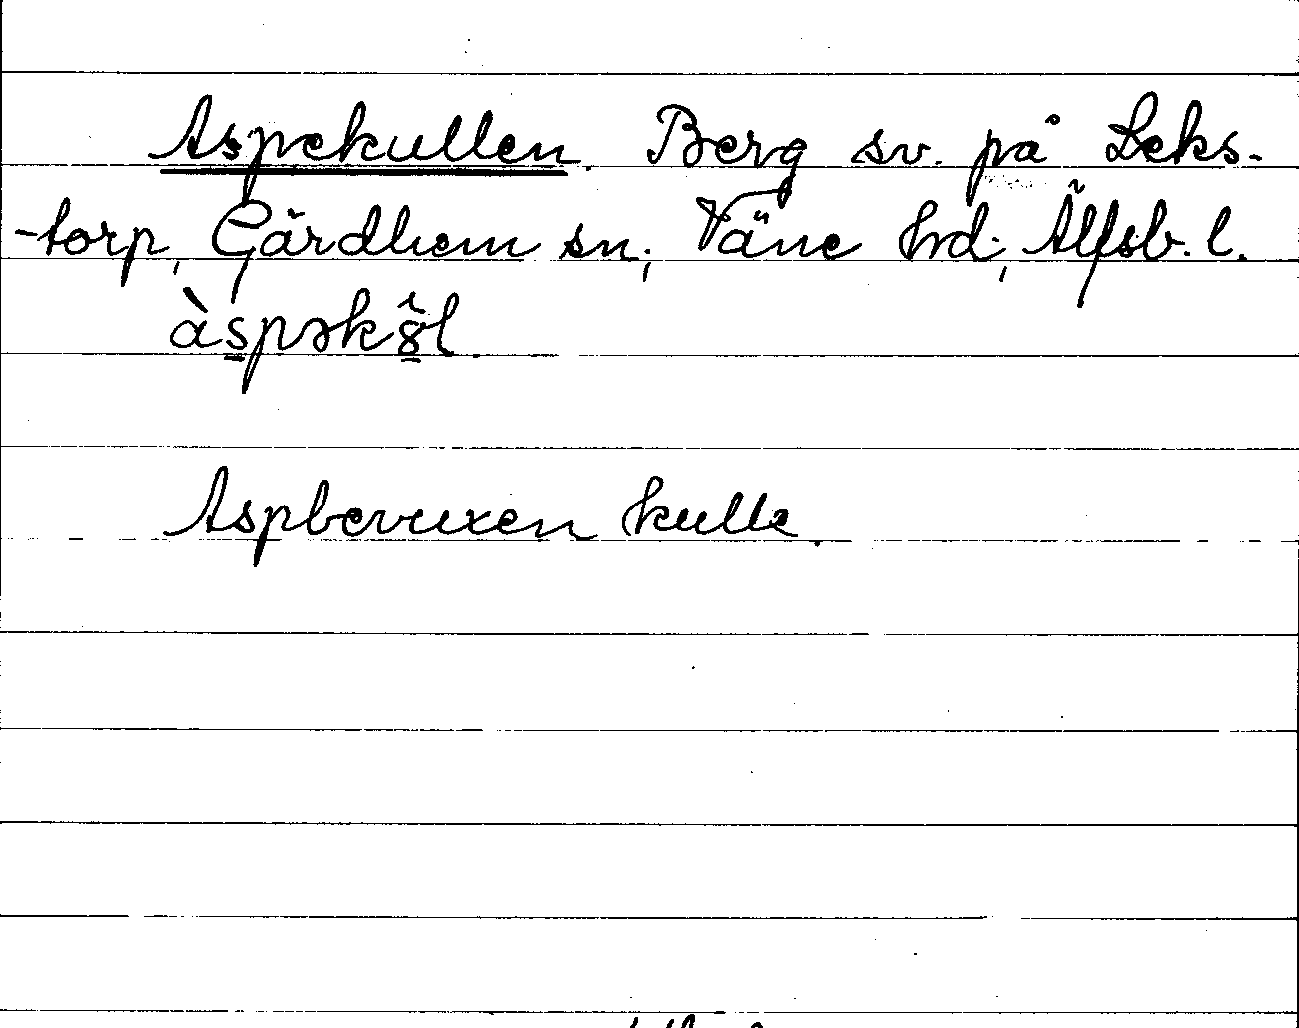 Aspekullen. Berg sv. på Leks-
-torp, Gärdhem sn, Väne hd, Älfsb. l.
àspək 8̂l
Aspbevuxen kulle.